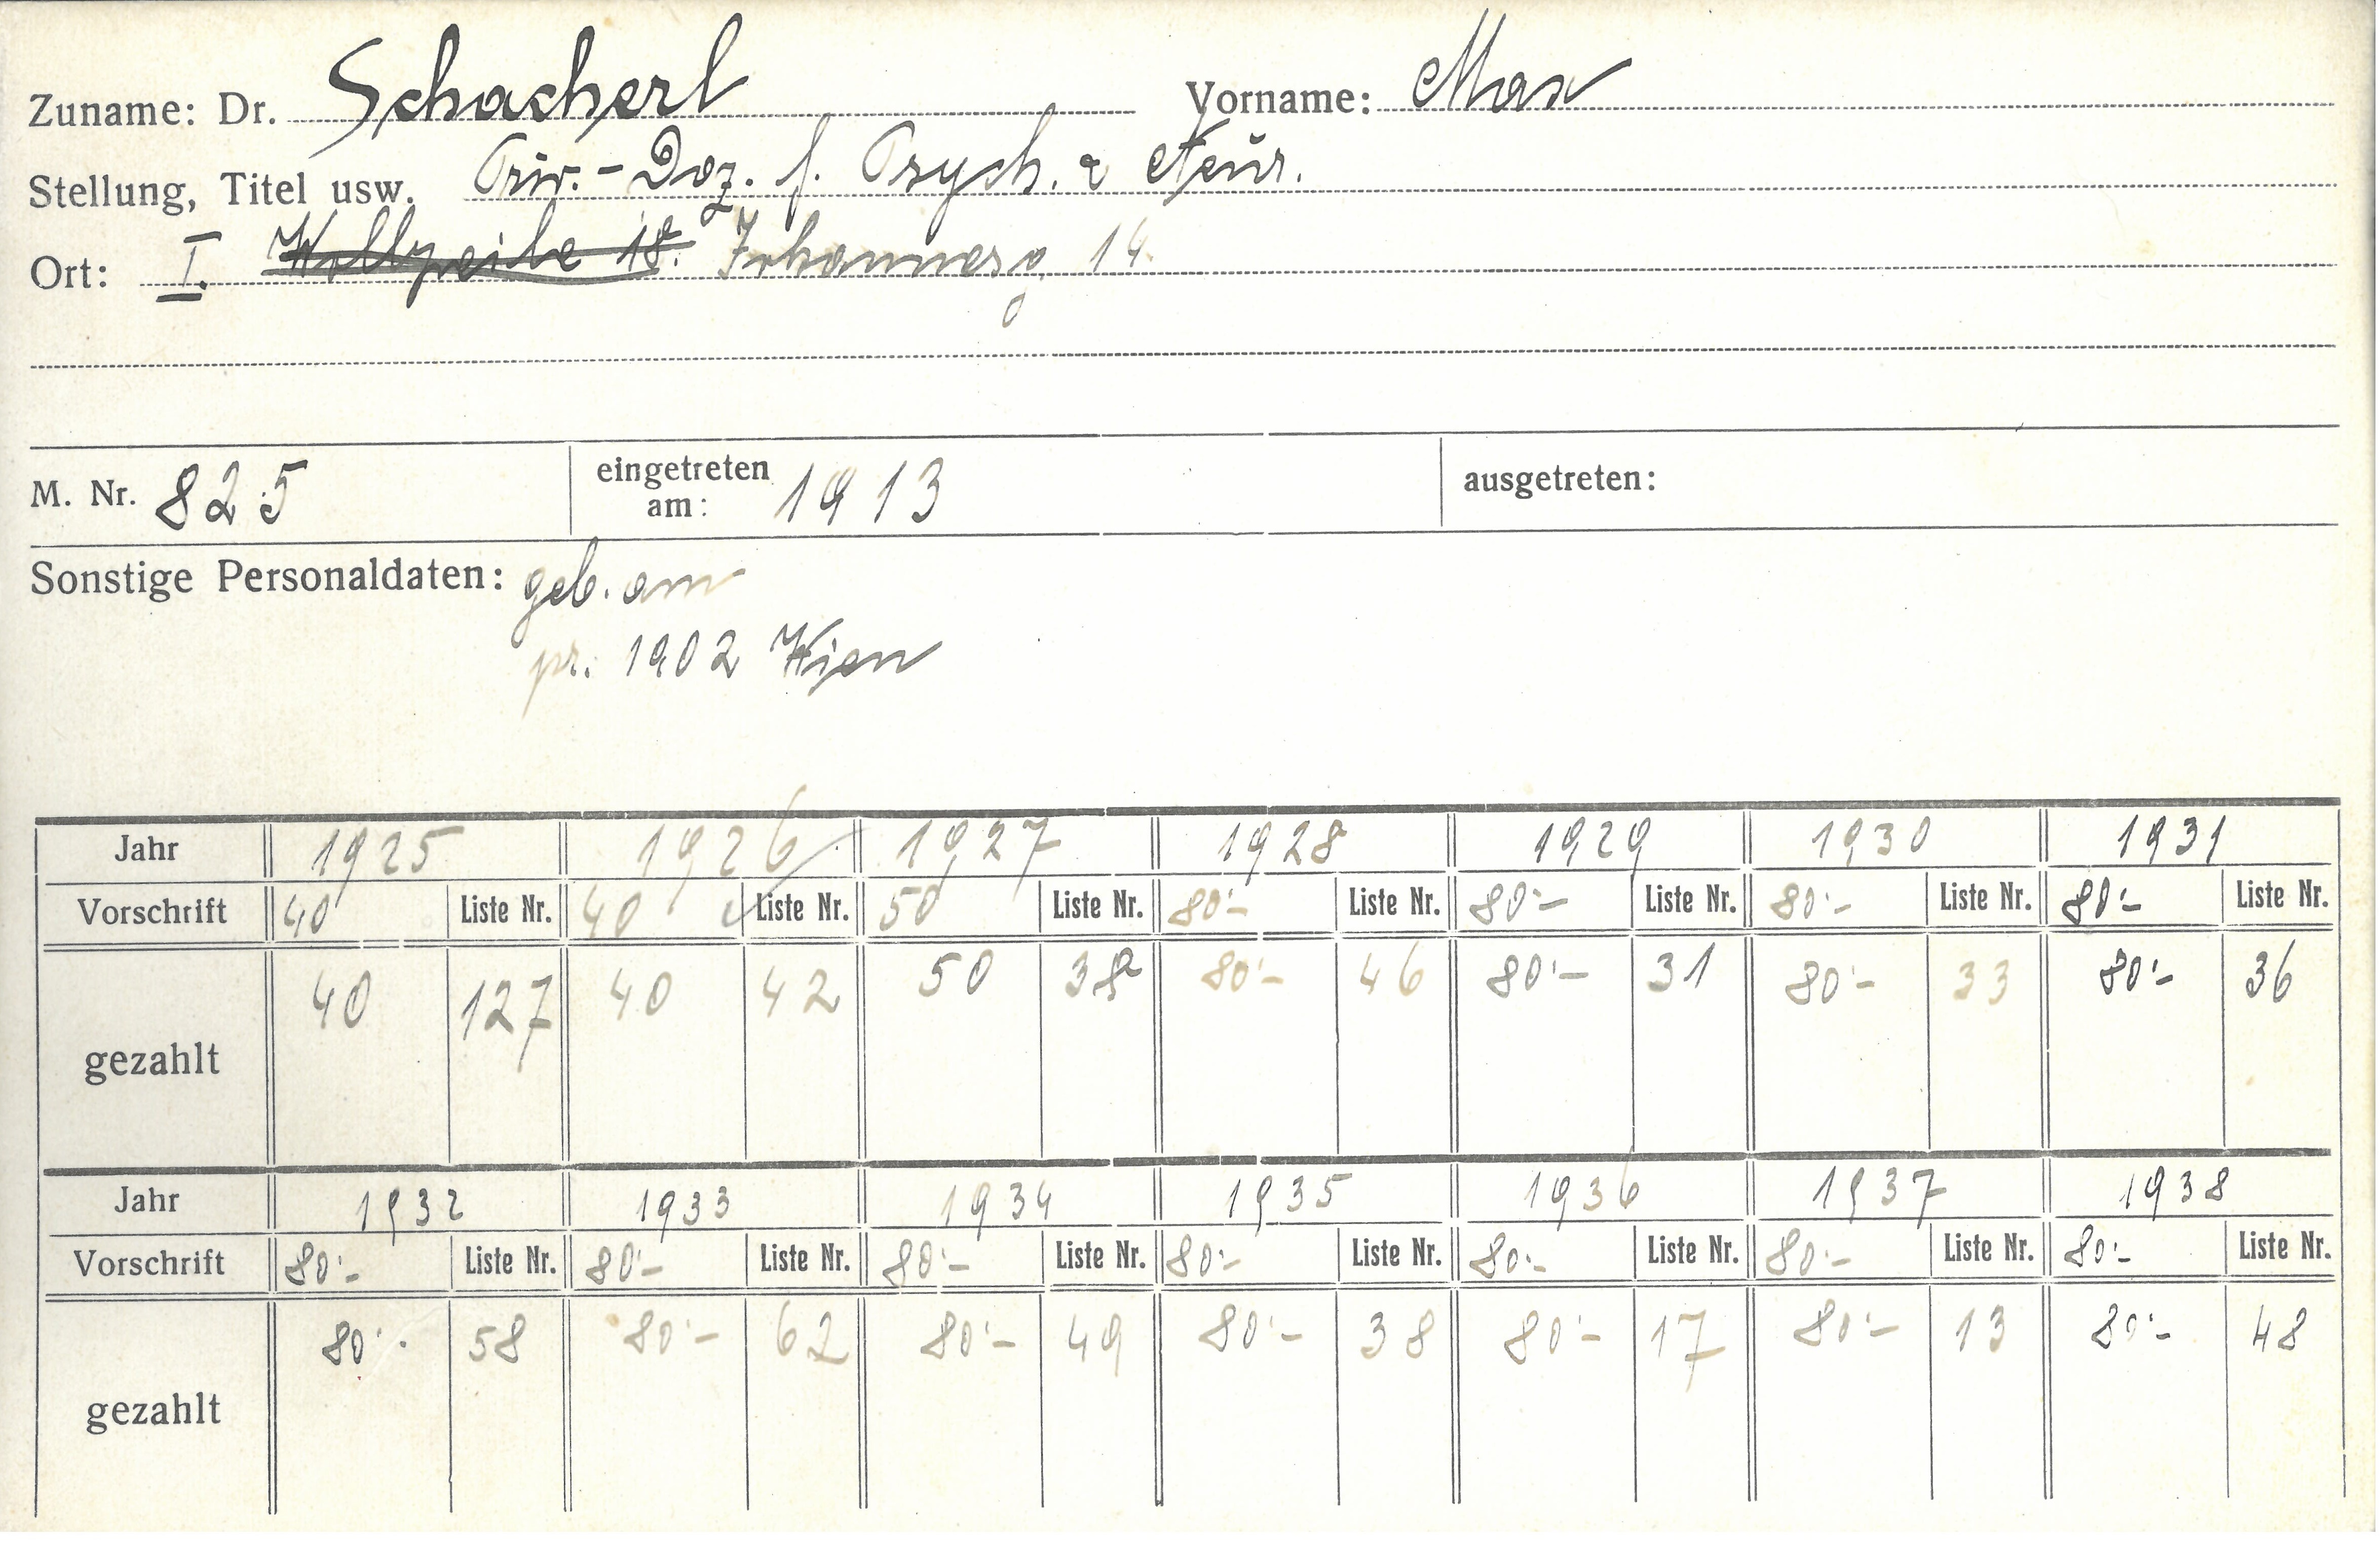 Zuname: Dr. Schacherl Vorname: Max
Stellung, Titel usw. Priv.-Doz. f. Psych. & Neur.
Ort: I. Wollzeile 18. Johannesg. 14
M. Nr. 825 eingetreten am: 1913 ausgetreten:
Sonstige Personaldaten: geb. am
pr. 1902 Wien
Jahr 1925 1926 1927 1928 1929 1930 1931
Vorschrift 40 Liste Nr. 40 Liste Nr. 50 Liste Nr. 80·- Liste Nr. 80·- Liste Nr. 80·- Liste Nr. 80·- Liste Nr.
gezahlt 40 127 40 42 50 80·- 46 80·- 31 80·- 33 80·- 36
Jahr 1932 1933 1934 1935 1936 1937 1938
Vorschrift 80·- Liste Nr. 80·- Liste Nr. 80·- Liste Nr. 80·- Liste Nr. 80·- Liste Nr. 80·- Liste Nr. 80·- Liste Nr.
gezahlt 80·- 58 80·- 62 80·- 49 80·- 38 80·- 17 80·- 13 80·- 48